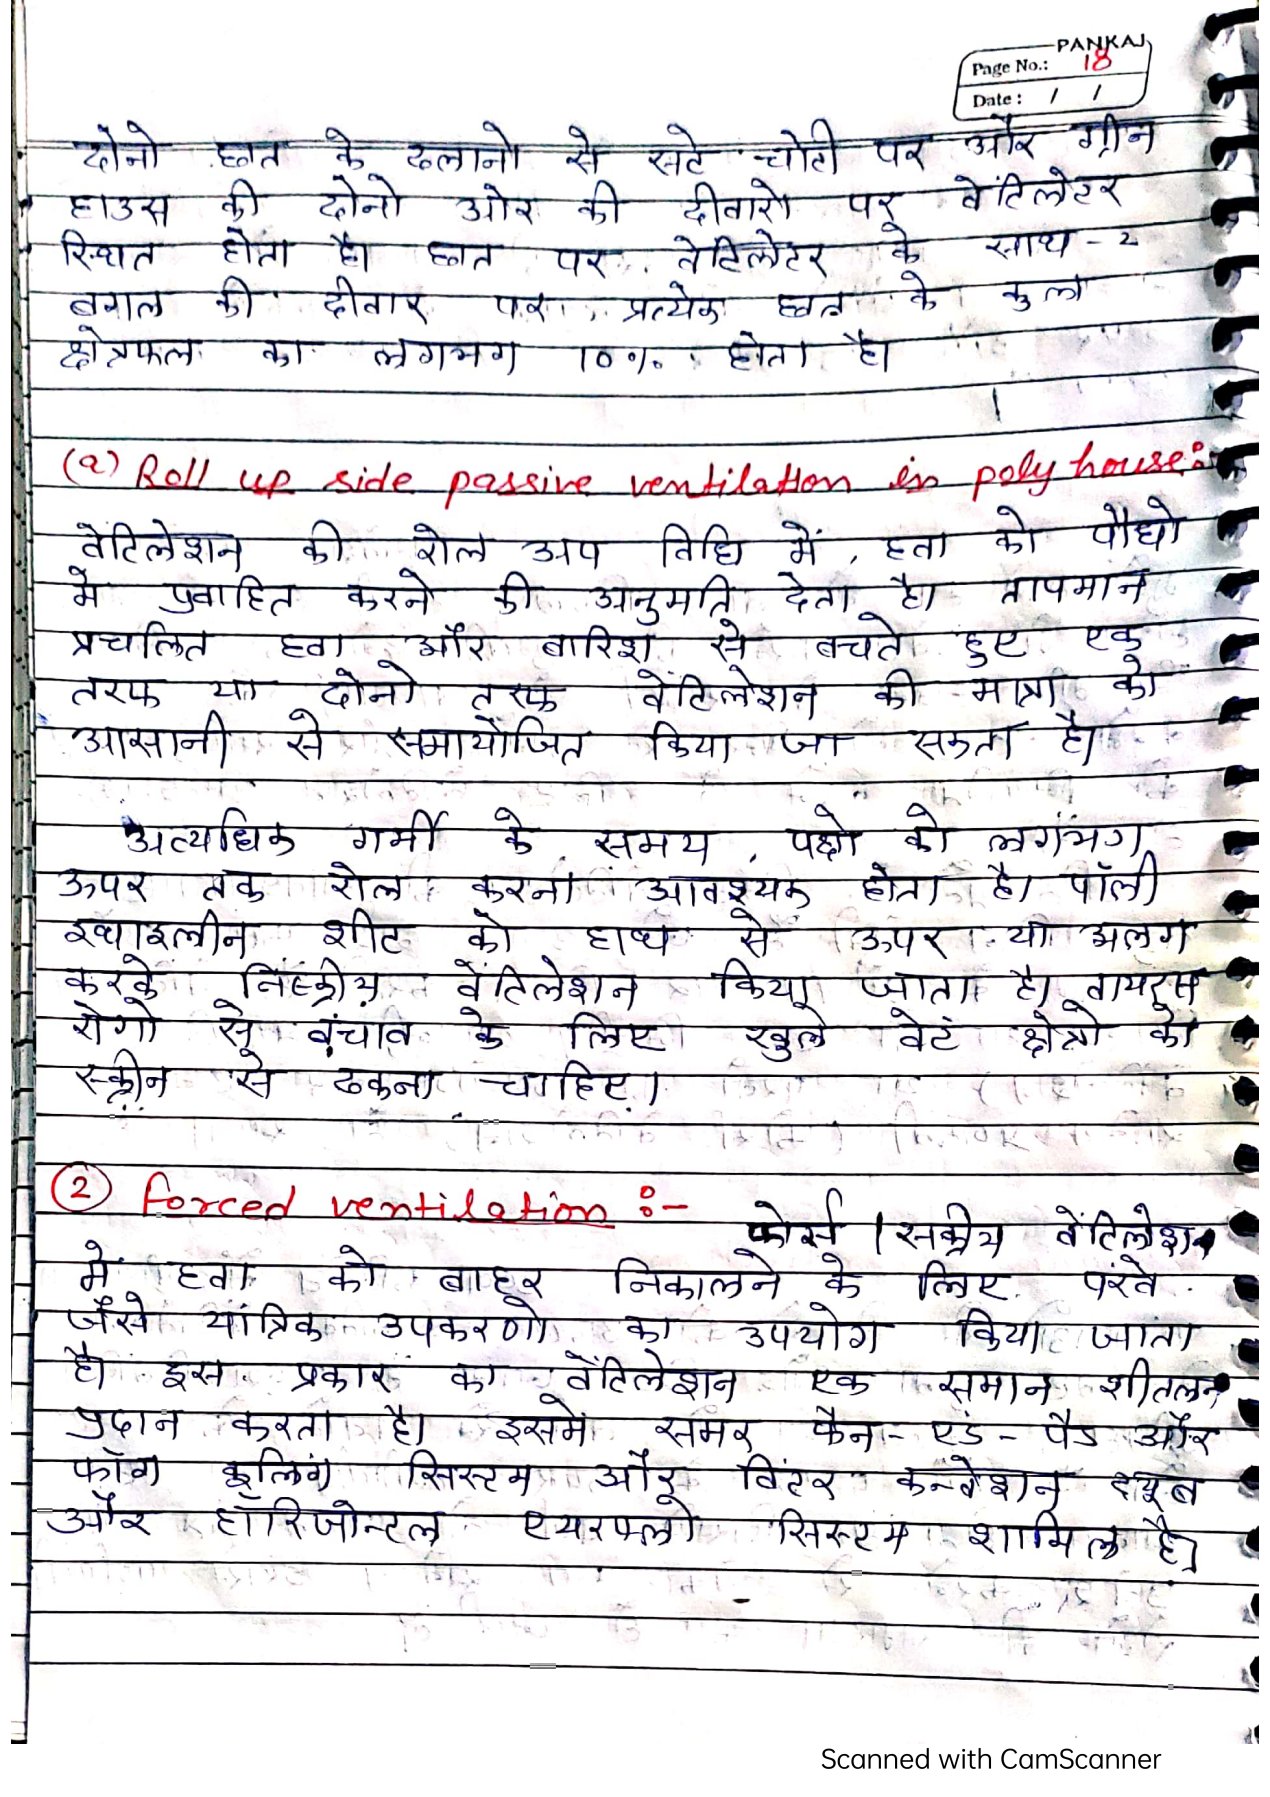 PANKAJ
Page No.: 18
Date : / /
दोनो छत के ढलानो से सटे चोटी पर और ग्रीन
हाउस की दोनो ओर की दीवारो पर वेंटिलेटर
स्थित होता है। छत पर वेंटिलेटर के साथ-2
बगल की दीवार पर प्रत्येक छत के कुल
क्षेत्रफल का लगभग 10% होता है।
(a) Roll up side passive ventilation in poly house:
वेंटिलेशन की रोल अप विधि में, हवा को पौधो
मे प्रवाहित करने की अनुमति देता है। तापमान
प्रचलित हवा और बारिश से बचते हुए एक
तरफ या दोनो तरफ वेंटिलेशन की मात्रा को
आसानी से समायोजित किया जा सकता है।
अत्यधिक गर्मी के समय, पक्षो को लगभग
ऊपर तक रोल करना आवश्यक होता है। पॉली
इथाइलीन शीट को हाथ से ऊपर या अलग
करके निष्क्रीय वेंटिलेशन किया जाता है। वायरस
रोगो से बंचाव के लिए खुले वेटं क्षेत्रो को
स्क्रीन से ढकना चाहिए।
(2) forced ventilation :-
फोर्स / सक्रीय वेंटिलेशन
में हवा को बाहर निकालने के लिए पंखे
जैसे यांत्रिक उपकरणो का उपयोग किया जाता
है। इस प्रकार का वेंटिलेशन एक समान शीतलन
प्रदान करता है। इसमें समर फैन-एंड-पैड और
फॉग कूलिंग सिस्टम और विंटर कन्वेशन ट्यूब
और हॉरिजोन्टल एयरफ्लो सिस्टम शामिल है।
Scanned with CamScanner